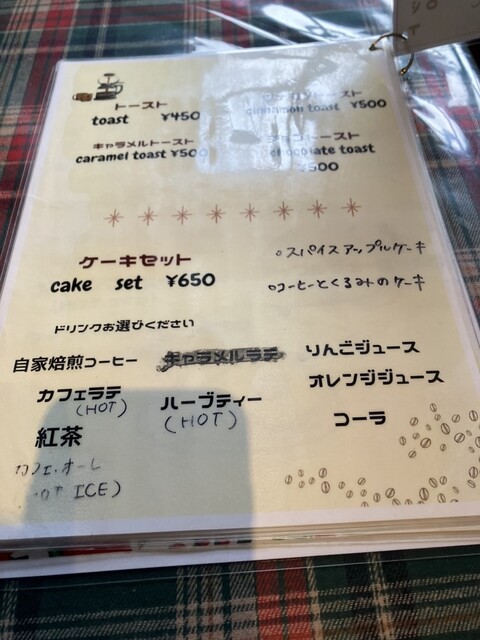 トースト
toast ¥450
トースト
cinnamon toast ¥500
キャラメルトースト
caramel toast ¥500
チョコトースト
chocolate toast
¥500
ケーキセット
cake set ¥650
○スパイスアップルケーキ
○コーヒーとくるみのケーキ
ドリンクお選びください
自家焙煎コーヒー
キャラメルラテ
りんごジュース
カフェラテ
(HOT)
ハーブティー
(HOT)
オレンジジュース
紅茶
コーラ
カフェ・オーレ
ICE)